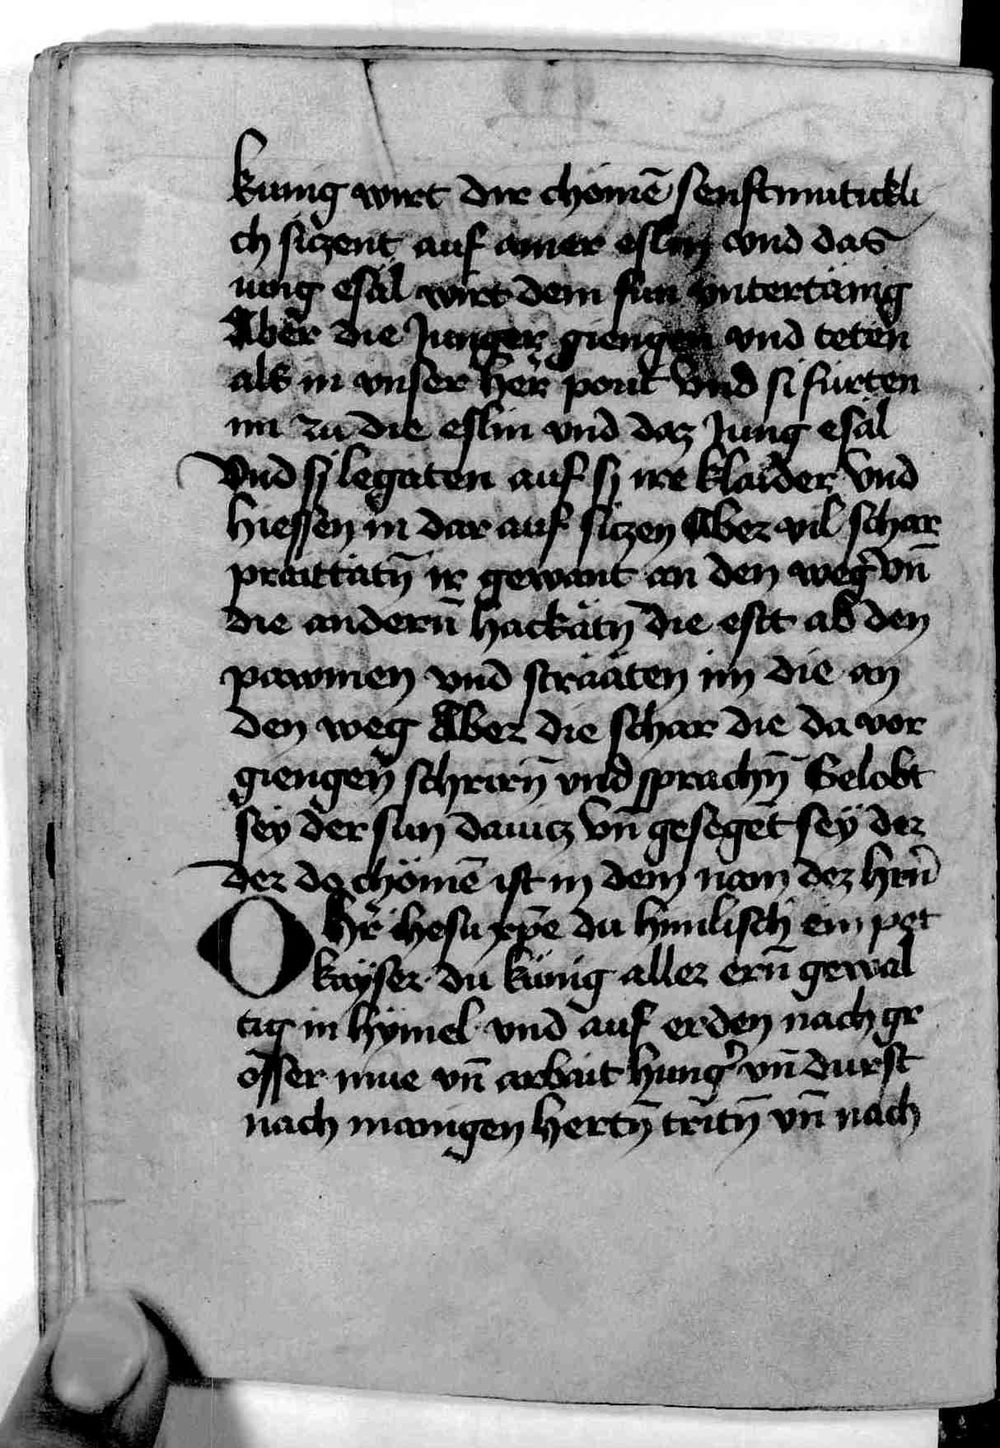 kunig wirt dir chomē senftmutickli
ch siczent auf ainer eslin vnd das
iung esäl wirt dem sun vntertänig
Aber die Junger giengen vnd teten
als in vnser her pout vnd si fürten
im zu die eslin vnd daz Jung esäl
Vnd sy legäten auf sy ire klaider Vnd
hiessen in dar auf siczen Aber vil schar
praittätn̄ ir gewant an den weg vn̄
die andern̄ hackätn die estt ab den
pawmen vnd strääten im die an
den weg Aber die schar die da vor
giengen schrirn̄ vnd sprachn̄ Gelobt
sey der sun dauitz vn̄ geseget sey der
der do chömē ist in dem nam dez hrn̄
O hr̄ ihesu xp̄e du himlisch ein pot
kayser du künig aller ern̄ gewal
tig in hymel vnd auf erden nach gr
össer mue vn̄ arbait hung' vn̄ durst
nach manigen hertn̄ tritn̄ vn̄ nach